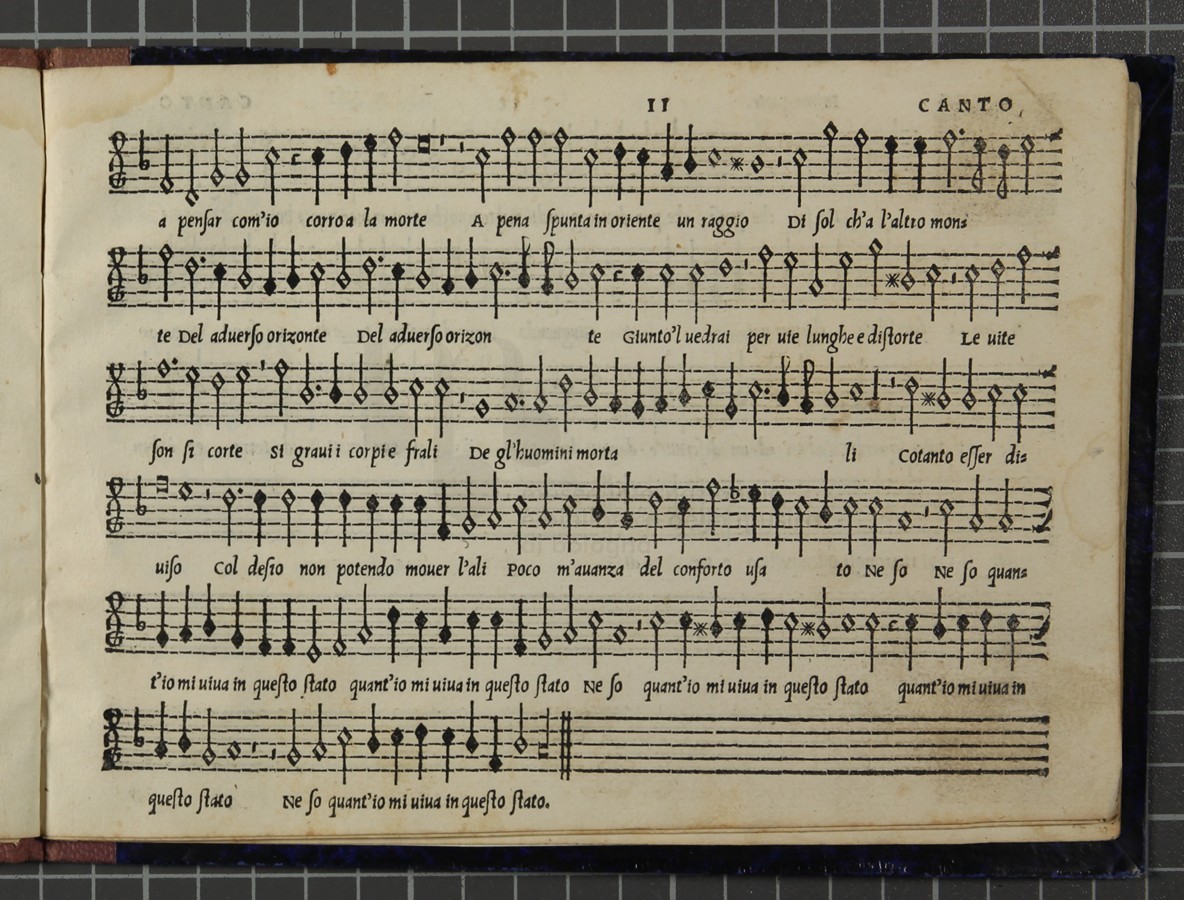 II CANTO
a penſar com'io corro a la morte A pena ſpunta in oriente un raggio Di ſol ch'a l'altro mon=
te Del aduerſo orizonte Del aduerſo orizon te Giunto'l uedrai per uie lunghe e diſtorte Le uite
ſon ſi corte Si graui i corpi e frali De gl'huomini morta li Cotanto eſſer di=
uiſo Col deſio non potendo mouer l'ali Poco m'auanza del conforto uſa to Ne ſo Ne ſo quan=
t'io mi uiua in queſto ſtato quant'io mi uiua in queſto ſtato Ne ſo quant'io mi uiua in queſto ſtato quant'io mi uiua in
queſto ſtato Ne ſo quant'io mi uiua in queſto ſtato.